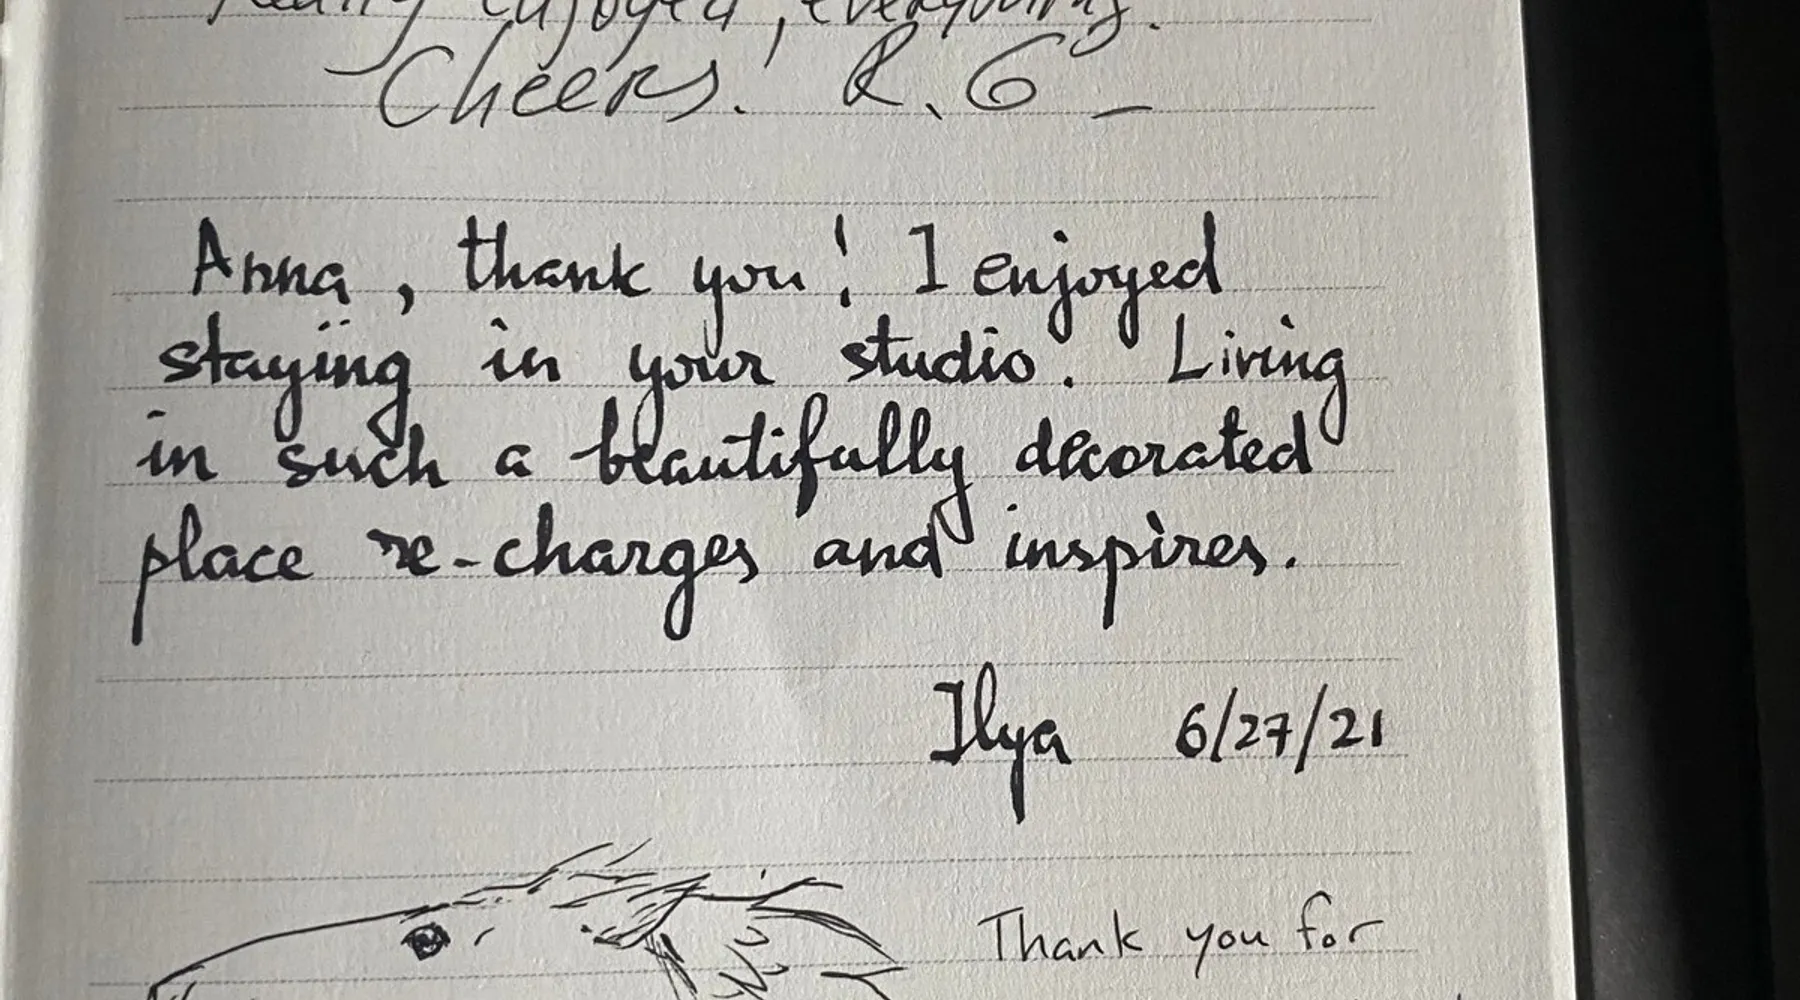 Really enjoyed, everything.
Cheers. R.G
Anna, thank you! I enjoyed
staying in your studio. Living
in such a beautifully decorated
place re-charges and inspires.
Ilya 6/27/21
Thank you for